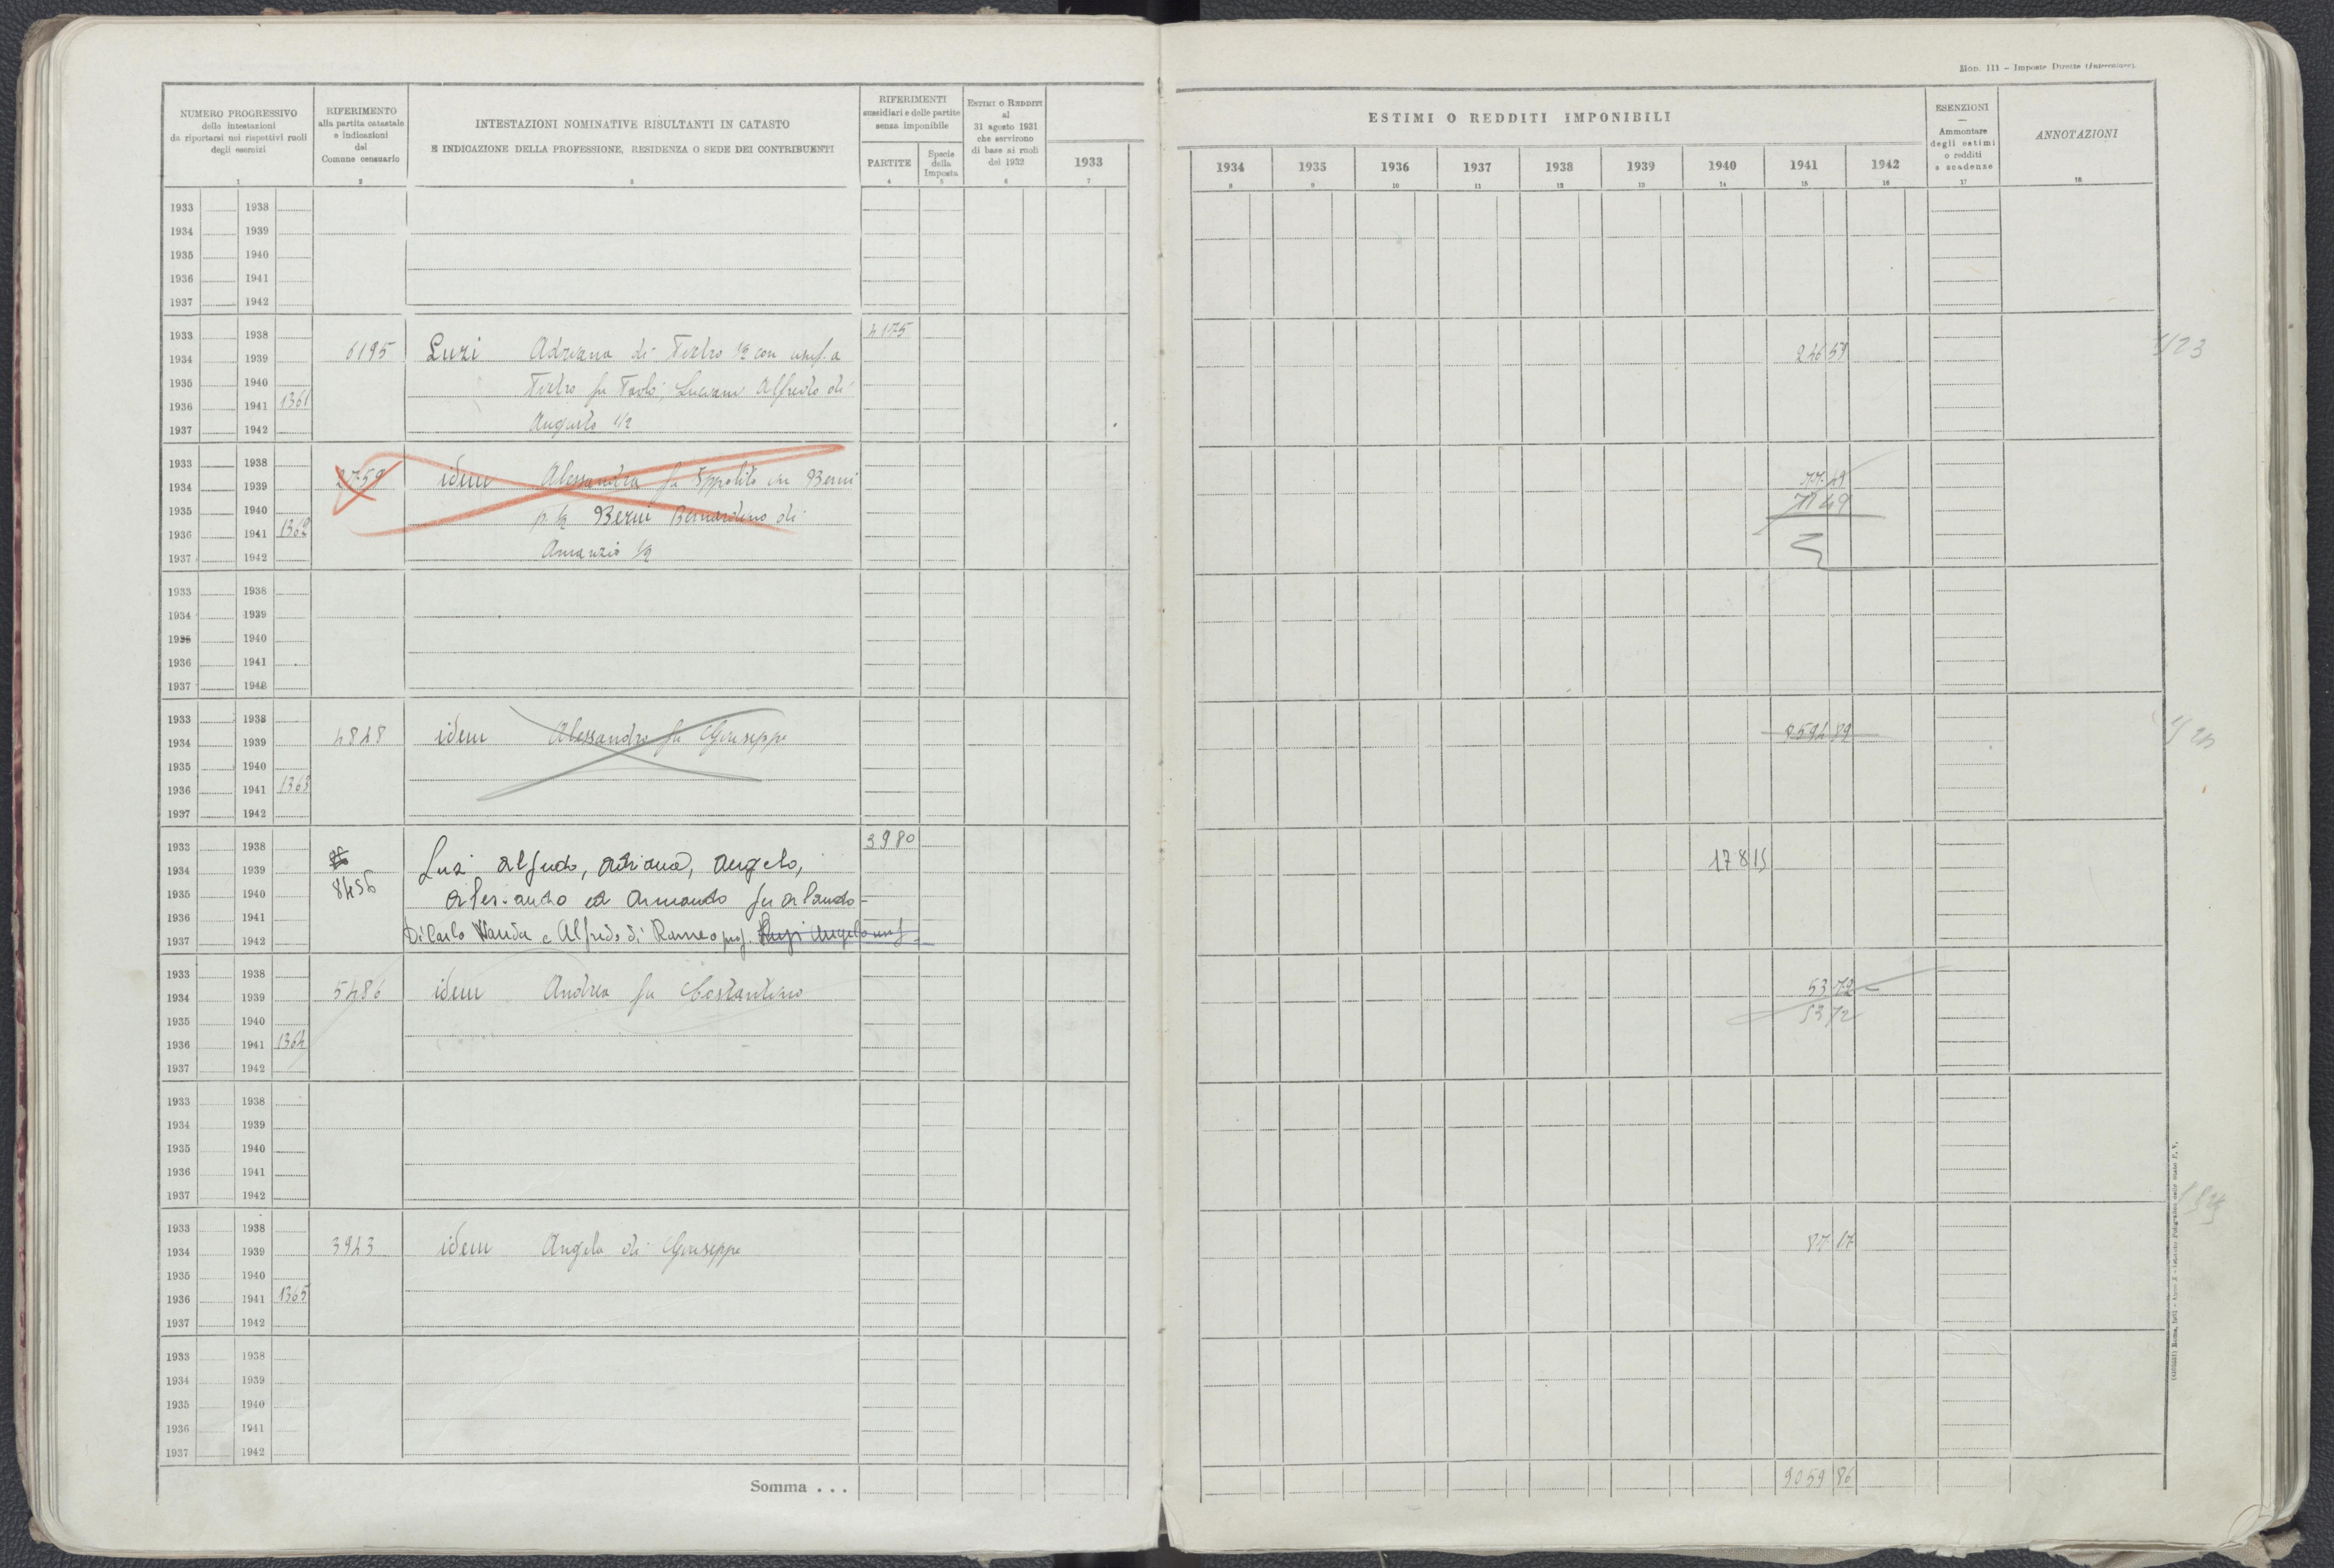 Mod. 111 – Imposte Dirette (Intercalare).
NUMERO PROGRESSIVO
delle intestazioni
da riportarsi nei rispettivi ruoli
degli esercizi
1
RIFERIMENTO
alla partita catastale
e indicazioni
del
Comune censuario
2
INTESTAZIONI NOMINATIVE RISULTANTI IN CATASTO
E INDICAZIONE DELLA PROFESSIONE, RESIDENZA O SEDE DEI CONTRIBUENTI
3
RIFERIMENTI
sussidiari e delle partite
senza imponibile
PARTITE
4
Specie
della
Imposta
5
ESTIMI O REDDITI
al
31 agosto 1931
che servirono
di base ai ruoli
del 1932
6
1933
7
ESTIMI O REDDITI IMPONIBILI
1934 1935 1936 1937 1938 1939 1940 1941 1942
8 9 10 11 12 13 14 15 16
ESENZIONI
—
Ammontare
degli estimi
o redditi
e scadenze
17
ANNOTAZIONI
18
1933 1938
1934 1939
1935 1940
1936 1941
1937 1942
1933 1938 4175
1934 1939 6195 Luzi Adriana di 1/2 con usuf. a 246 59
1935 1940 fu Alfredo di
1936 1941 1361
1937 1942 Augusto 1/2
1933 1938
1934 1939 2759 idem Alessandra fu Ippolito in Berni 77 49
1935 1940 p. 1/2 Berni Bernardino di 77 49
1936 1941 1362
1937 1942 Amanzio 1/2
1933 1938
1934 1939
1935 1940
1936 1941
1937 1942
1933 1938
1934 1939 4848 idem Alessandro fu Giuseppe 8594 89
1935 1940
1936 1941 1363
1937 1942
1933 1938 3980
1934 1939 Luzi Alfredo, Adriana, Angelo, 178 15
1935 1940 8456 Alessandro ed Armando fu Orlando
1936 1941
1937 1942 Di Carlo Wanda e Alfredo di Romeo prof. Luzi Angelo usuf
1933 1938
1934 1939 5486 idem Andrea fu Costantino 53 72
1935 1940 53 72
1936 1941 1364
1937 1942
1933 1938
1934 1939
1935 1940
1936 1941
1937 1942
1933 1938
1934 1939 3943 idem Angela di Giuseppe 87 17
1935 1940
1936 1941 1365
1937 1942
1933 1938
1934 1939
1935 1940
1936 1941
1937 1942
Somma . . . 9059 86